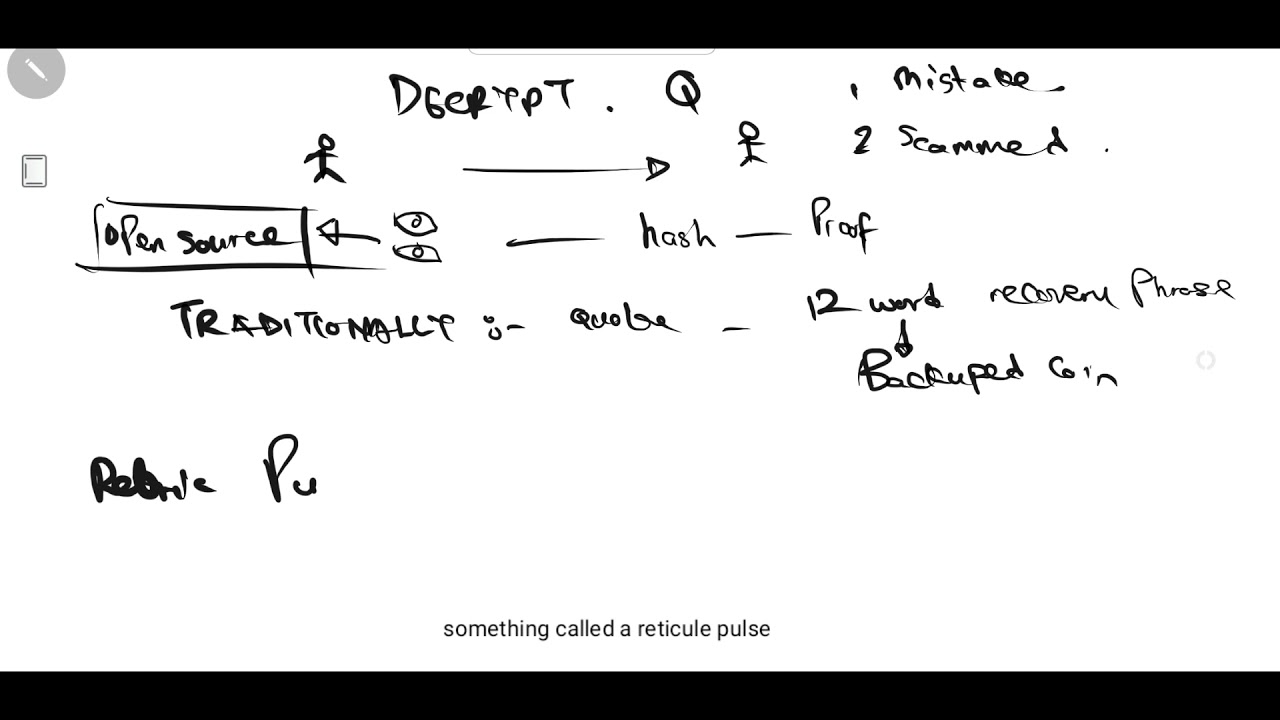 DECRYPT . Q
1 mistake
2 Scammed .
open source
hash — Proof
TRADITIONALLY :- quobe — 12 word recovery Phrase
Backuped Coin
Pu
something called a reticule pulse